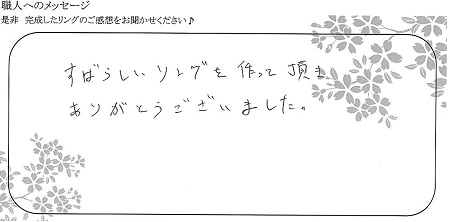 職人へのメッセージ
是非 完成したリングのご感想をお聞かせください♪
すばらしいリングを作って頂き
ありがとうございました。